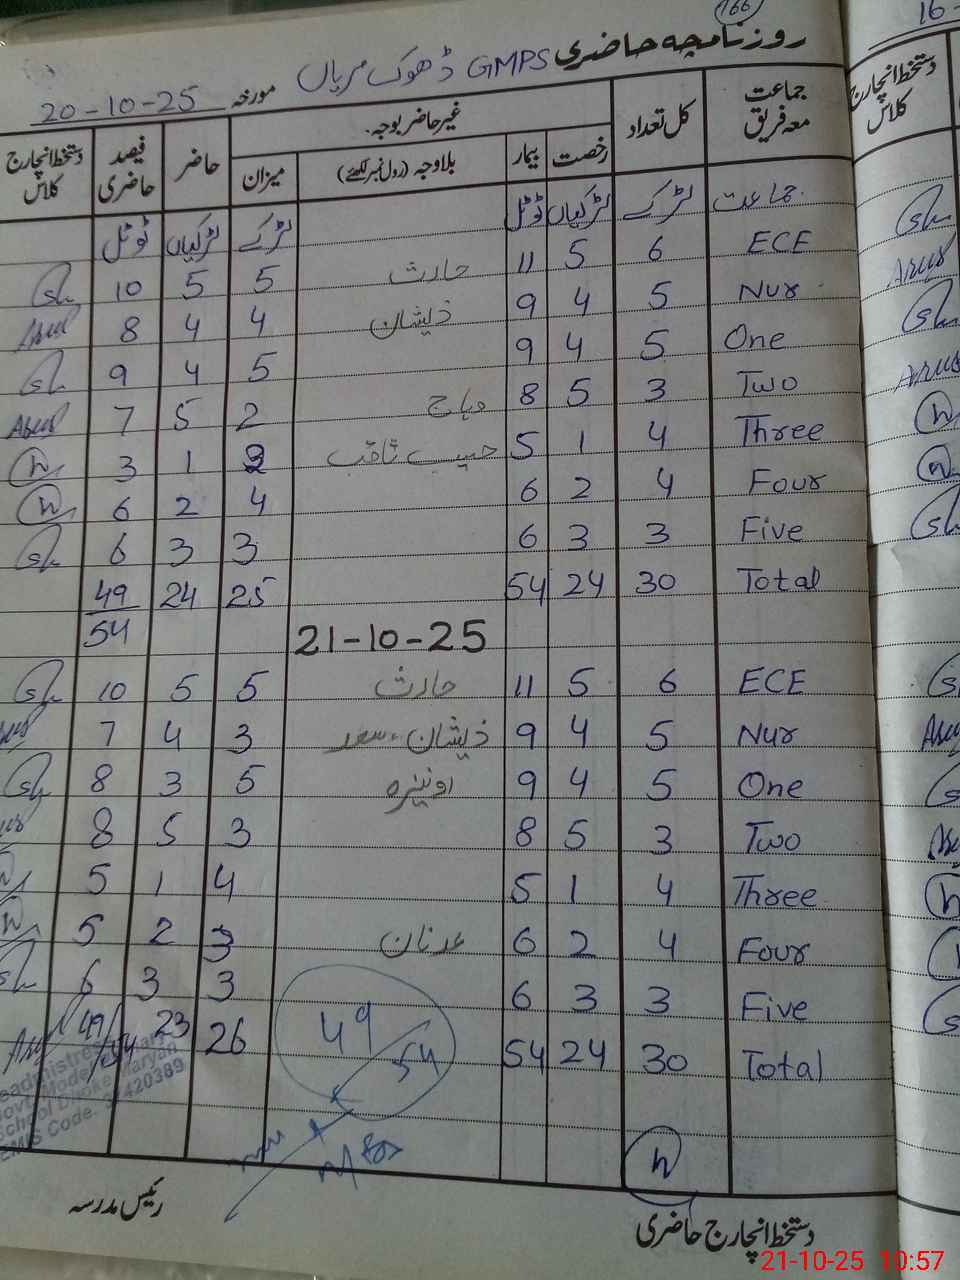 166
روزنامچہ حاضری GMPS ڈھوک مریاں مورخہ 20-10-25
جماعت معہ فریق کل تعداد غیر حاضر بوجہ۔ حاضر فیصد حاضری دستخط انچارج کلاس
رخصت بیمار بلاوجہ (رول نمبر لکھئے) میزان
جماعت لڑکے لڑکیاں ٹوٹل لڑکے لڑکیاں ٹوٹل
ECE 6 5 11 حارث 5 5 10 Sh
Nur 5 4 9 ذیشان 4 4 8
One 5 4 9 5 4 9 Sh
Two 3 5 8 وہاج 2 5 7
Three 4 1 5 حبیب ثاقب 2 1 3 h
Four 4 2 6 4 2 6 h
Five 3 3 6 3 3 6 Sh
Total 30 24 54 25 24 49/54
21-10-25
ECE 6 5 11 حارث 5 5 10 Sh
Nur 5 4 9 ذیشان، سعد 3 4 7
One 5 4 9 5 3 8 Sh
Two 3 5 8 3 5 8
Three 4 1 5 4 1 5
Four 4 2 6 عدنان 3 2 5 h
Five 3 3 6 3 3 6 Sh
Total 30 24 54 26 23 49/54
49/54
h
School Dhoke Maryan
EMIS Code.
دستخط انچارج حاضری
رئیس مدرسہ
21-10-25 10:57
16-
دستخط انچارج کلاس